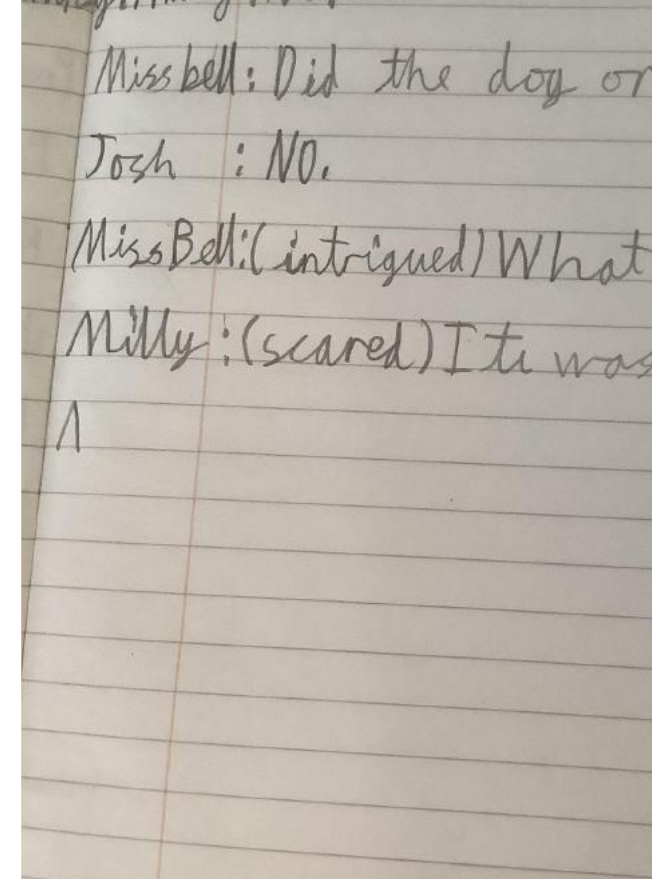 Miss bell: Did the dog or
Josh : NO.
Miss Bell: (intrigued) What
Milly : (scared) I ti was